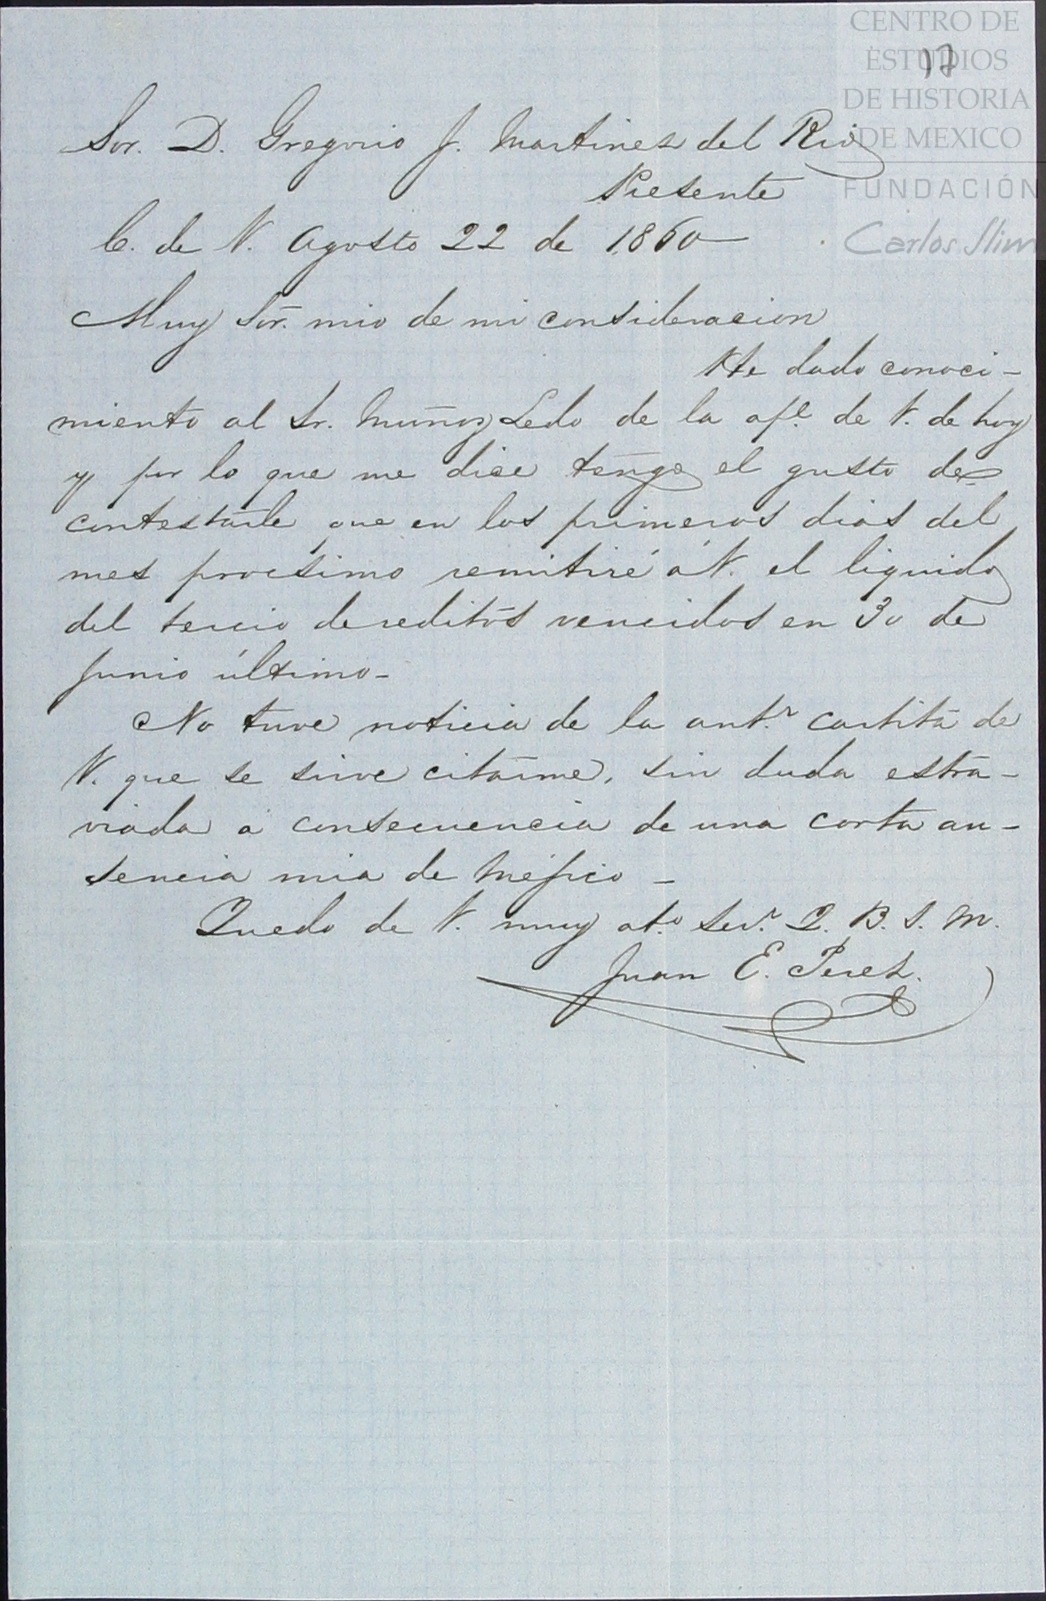 CENTRO DE
ESTUDIOS
DE HISTORIA
DE MEXICO
FUNDACIÓN
Carlos Slim
17
Sor. D. Gregorio J. Martinez del Rio
Presente
C. de V. Agosto 22 de 1860
Muy Sor. mio de mi consideracion
He dado conoci-
miento al Sr. Muñoz Ledo de la apẽ. de V. de hoy
y por lo que me dice tengo el gusto de
contestarle que en los primeros dias del
mes procsimo remitiré á V. el liquido
del tercio de reditos vencidos en 30 de
Junio último-
No tuve noticia de la antr. cartita de
V. que se sirve citarme, sin duda estra-
viada á consecuencia de una corta au-
sencia mia de Mejico-
Quedo de V. muy ato. Servr. Q. B. S. M.
Juan E. Perez.